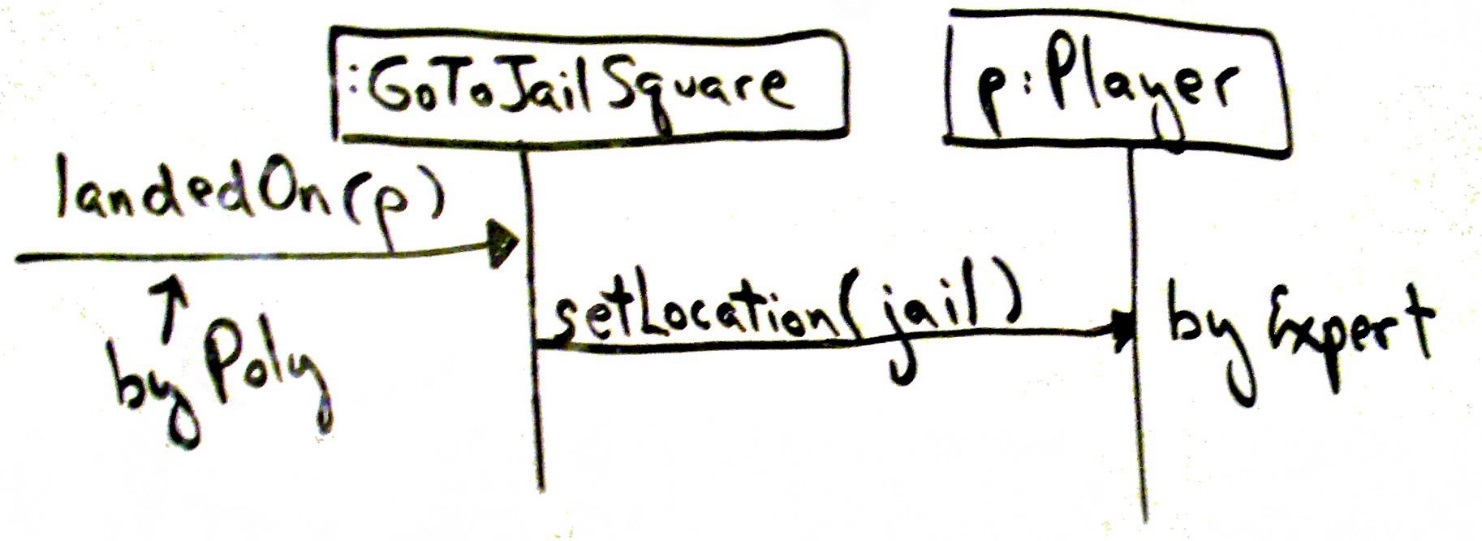 :GoToJailSquare
p:Player
landedOn(p)
by Poly
setLocation(jail)
by Expert